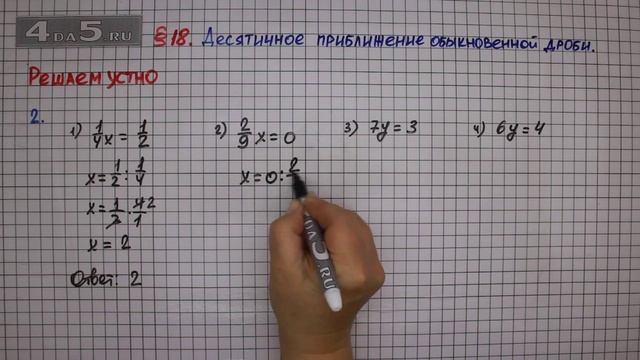 4DA5.RU
§18. Десятичное приближение обыкновенной дроби.
Решаем устно
2.
1) 1/4 x = 1/2
x = 1/2 : 1/4
x = 1/2 · 42/1
x = 2
Ответ: 2
2) 2/9 x = 0
x = 0 : 2
3) 7y = 3
4) 6y = 4
DA5.RU